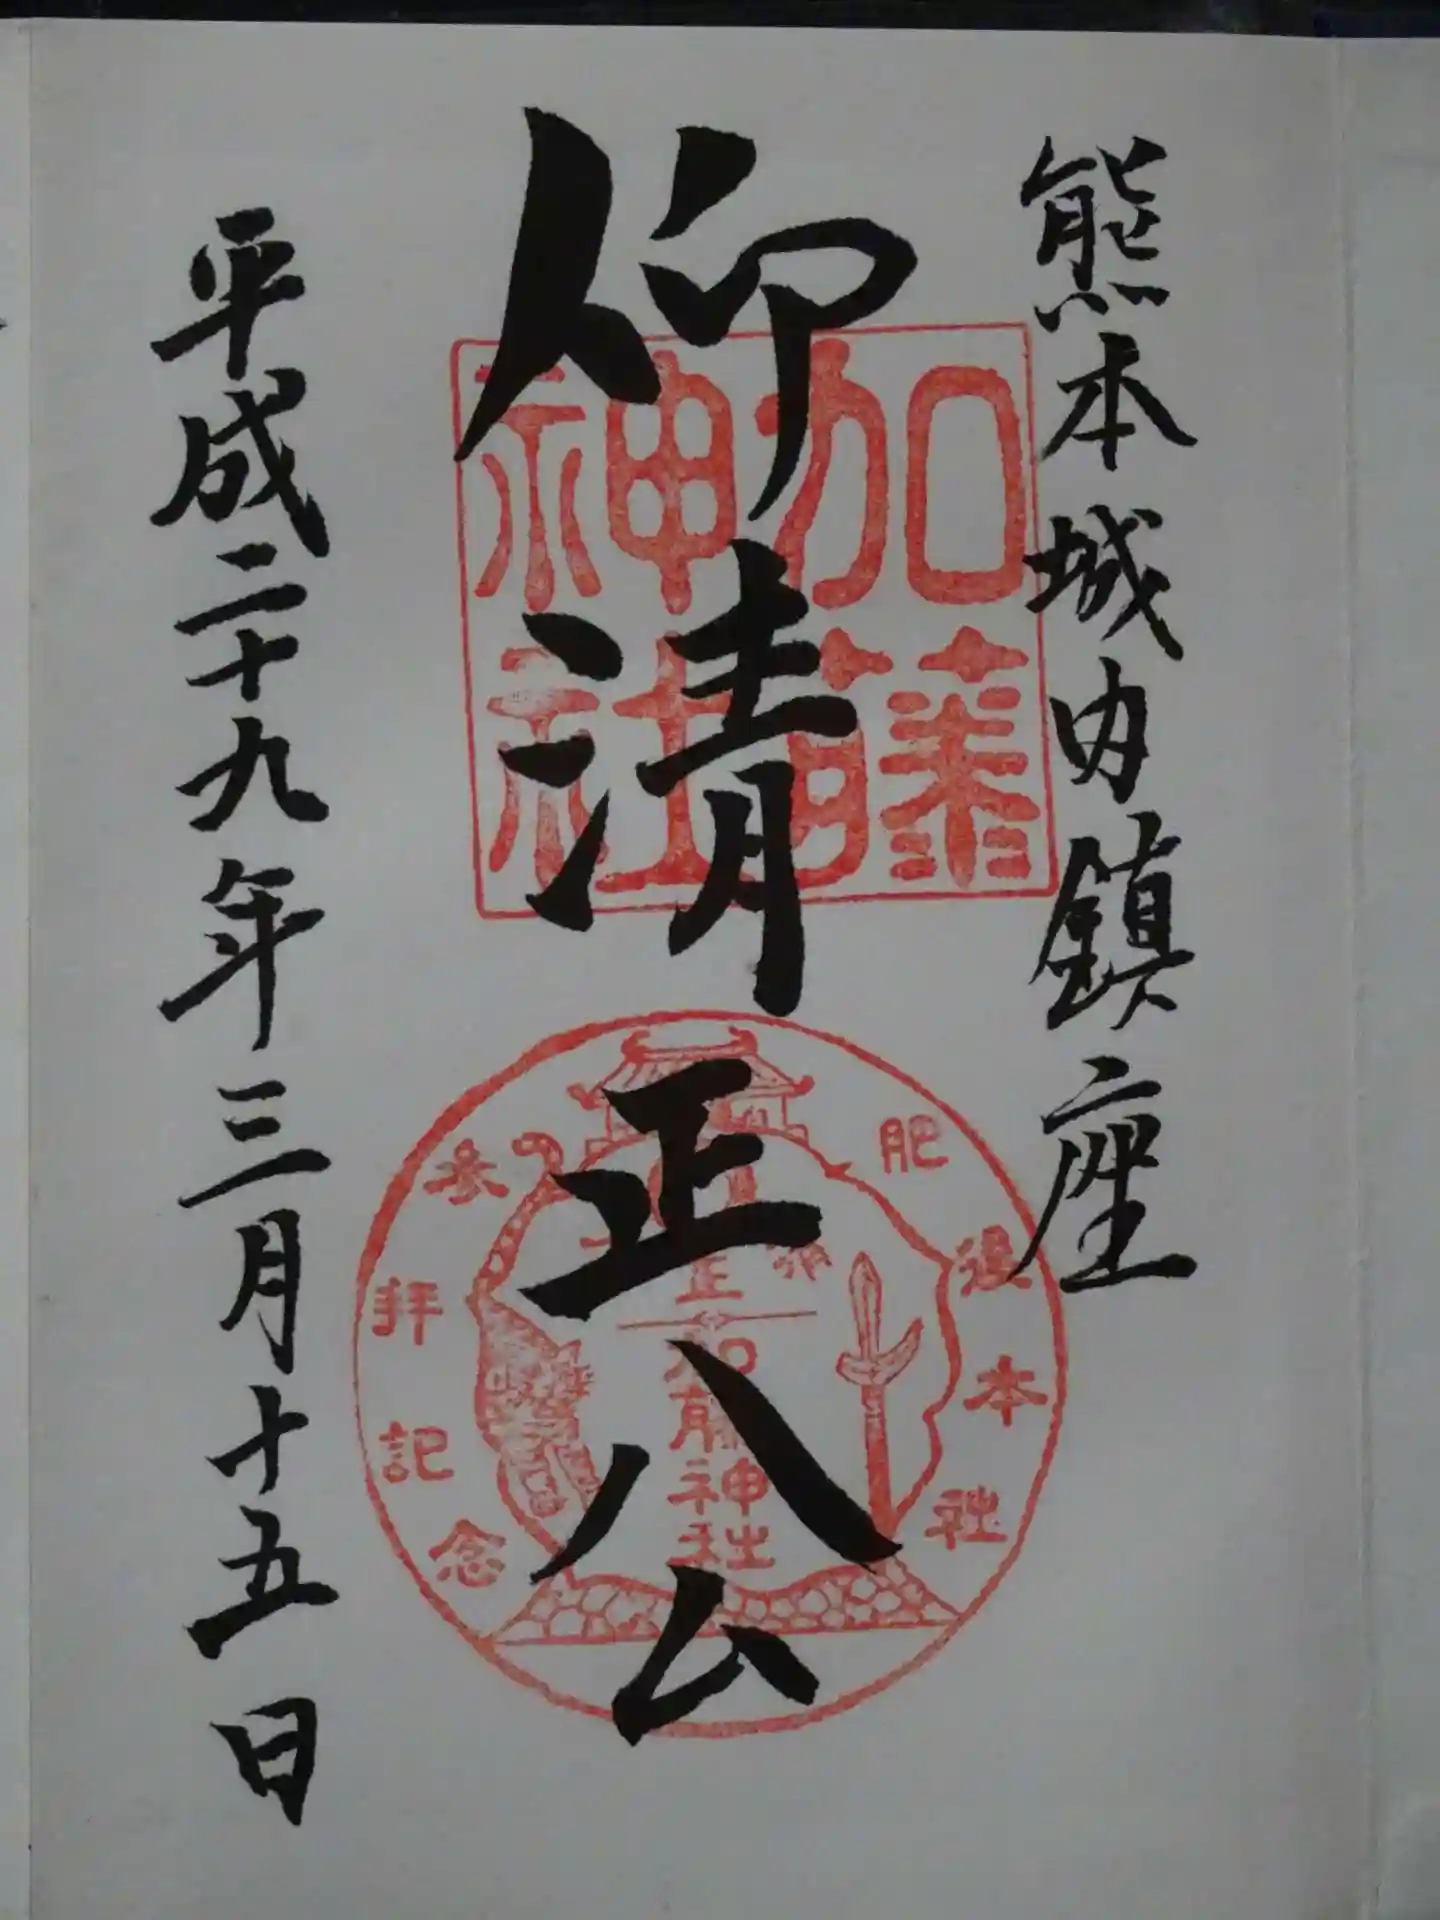 熊本城内鎮座
仰清正公
平成二十九年三月十五日
加藤
神社
肥後本社
参拝記念
加藤神社